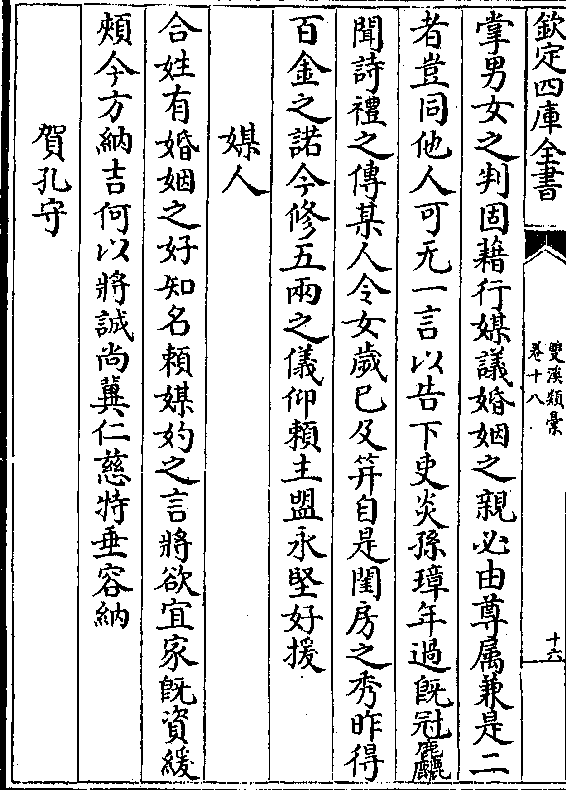 欽定四庫全書
雙溪類稾
卷十八
十六
掌男女之判固藉行媒議婚姻之親必由尊属兼是二
者豈同他人可无一言以告下吏炎孫璋年過既冠麤
聞詩禮之傳某人令女歲已及笄自是閨房之秀昨得
百金之諾今修五兩之儀仰賴主盟永堅好援
媒人
合姓有婚姻之好知名賴媒妁之言將欲宜家既資緩
頰今方納吉何以將誠尚冀仁慈特垂容納
賀孔守